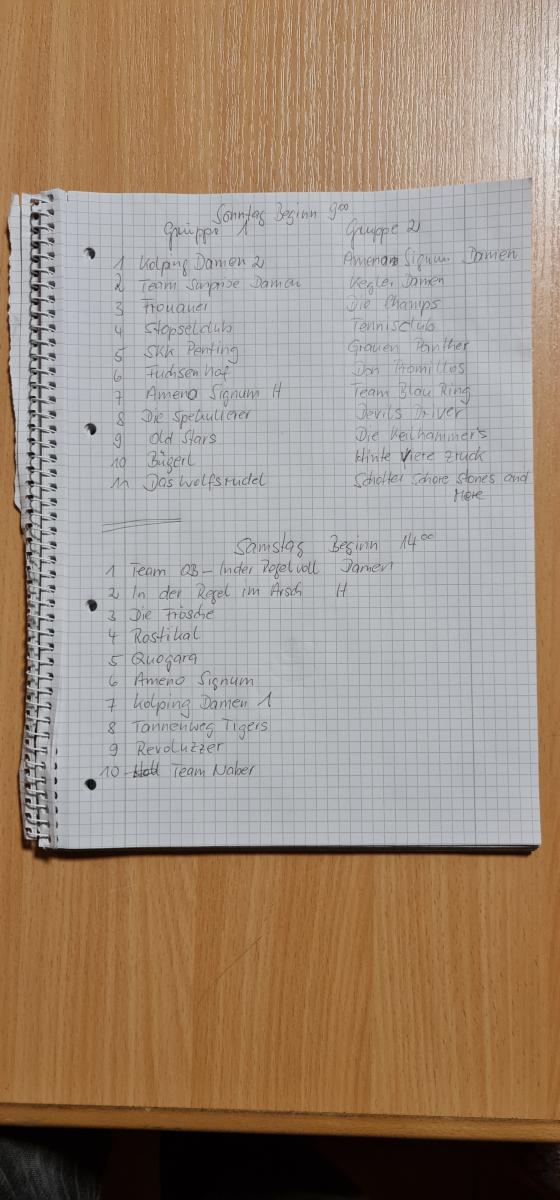 Sonntag Beginn 9⁰⁰
Gruppe 1 Gruppe 2
1 Kolping Damen 2 Ameno Signum Damen
2 Team Surprise Damen Kegler Damen
3 Fronauer Die Champs
4 Stopselclub Tennisclub
5 SKK Penting Grauen Panther
6 Fuchsenhof Don Promillos
7 Ameno Signum H Team Blau Ring
8 Die Spekulierer Devils Driver
9 Old Stars Die Keilhammer's
10 Bügerl Hinte Viere zruck
11 Das Wolfsrudel Schotter Schore Stones and
More
Samstag Beginn 14⁰⁰
1 Team OB - In der Regel voll Damen
2 In der Regel im Arsch H
3 Die Frösche
4 Rostikal
5 Quogara
6 Ameno Signum
7 Kolping Damen 1
8 Tannenweg Tigers
9 Revoluzzer
10 Team Naber